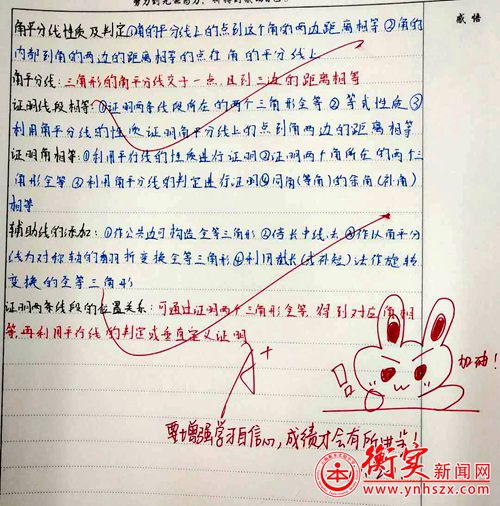 感悟
角平分线性质及判定①角的平分线上的点到这个角的两边距离相等②角的
内部到角的两边的距离相等的点在角的平分线上
角平分线:三角形的角平分线交于一点,且到三边的距离相等
证明线段相等:①证明两条线段所在的两个三角形全等②等式性质③
利用角平分线的性质证明角平分线上的点到角两边的距离相等
证明角相等:①利用平行线的性质进行证明②证明两个角所在的两个三
角形全等③利用角平分线的判定进行证明④同角(等角)的余角(补角)
相等
辅助线的添加:①作公共边可构造全等三角形②倍长中线法③作以角平分
线为对称轴的翻折变换全等三角形④利用截长(或补短)法作旋转
变换的全等三角形
证明两条线段的位置关系:可通过证明两个三角形全等,得到对应角相
等,再利用平行线的判定或垂直定义证明
A+
加油!
要增强学习自信心,成绩才会有所进步!
衡实新闻网
www.ynhszx.com